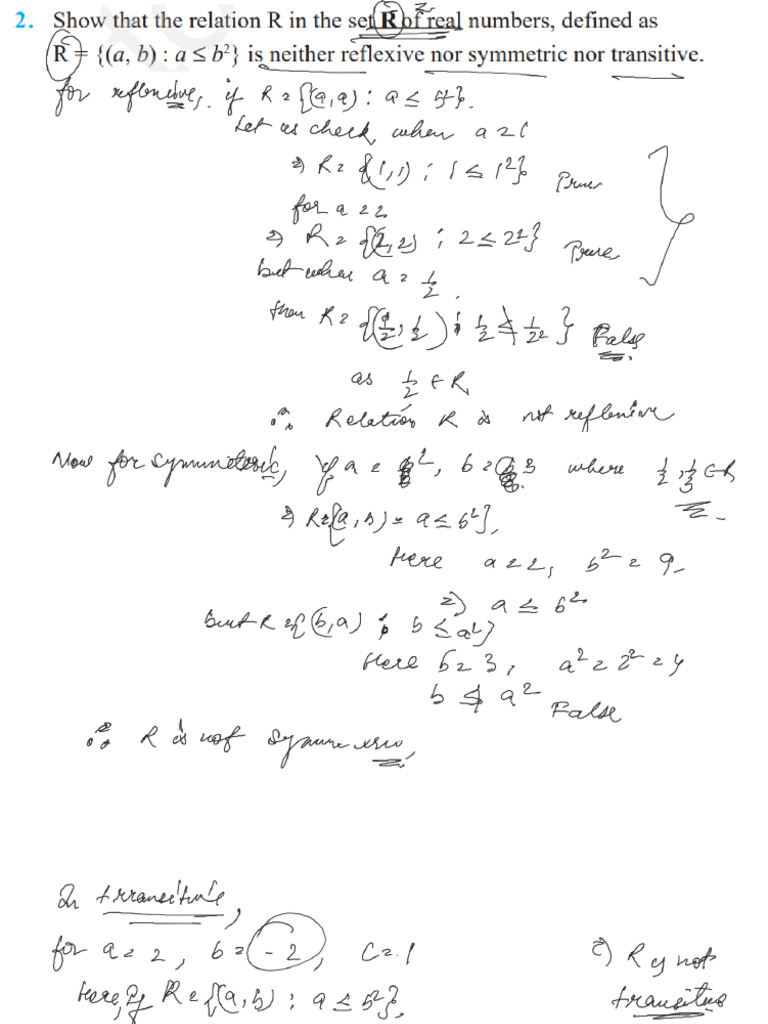 2. Show that the relation R in the set R of real numbers, defined as
R = {(a, b) : a ≤ b²} is neither reflexive nor symmetric nor transitive.
for reflexive, if R = {(a, a) : a ≤ b²}.
Let us check, when a = 1
⇒ R = {(1,1) ; 1 ≤ 1²} True
for a = 2
⇒ R = {(2, 2) ; 2 ≤ 2²} True
but when a = 1/2.
then R = {(1/2, 1/2) ; 1/2 ≰ 1/2²} False
as 1/2 ∈ R,
∴ Relation R is not reflexive
Now for symmetric, if a = 2, b = 3 where 1/2, 1/3 ∈ R
⇒ R = {(a, b) = a ≤ b²},
Here a = 2, b² = 9
⇒ a ≤ b²
but R = {(b, a) ; b ≤ a²}
Here b = 3, a² = 2² = 4
b ≰ a² False
∴ R is not symmetric,
In transitive,
for a = 2, b = -2, c = 1
⇒ R is not
Here, if R = {(a, b) : a ≤ b²},
transitive